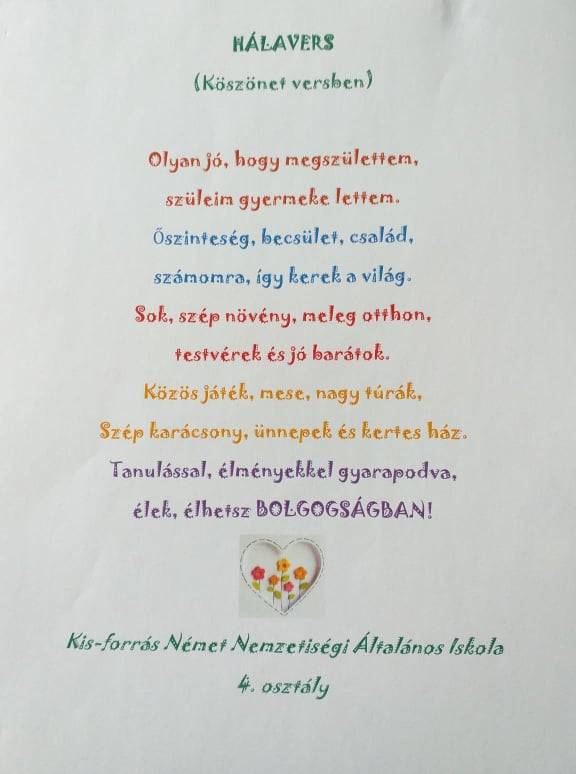 HÁLAVERS
(Köszönet versben)
Olyan jó, hogy megszülettem,
szüleim gyermeke lettem.
Őszinteség, becsület, család,
számomra, így kerek a világ.
Sok, szép növény, meleg otthon,
testvérek és jó barátok.
Közös játék, mese, nagy túrák,
Szép karácsony, ünnepek és kertes ház.
Tanulással, élményekkel gyarapodva,
élek, élhetsz BOLGOGSÁGBAN!
Kis-forrás Német Nemzetiségi Általános Iskola
4. osztály